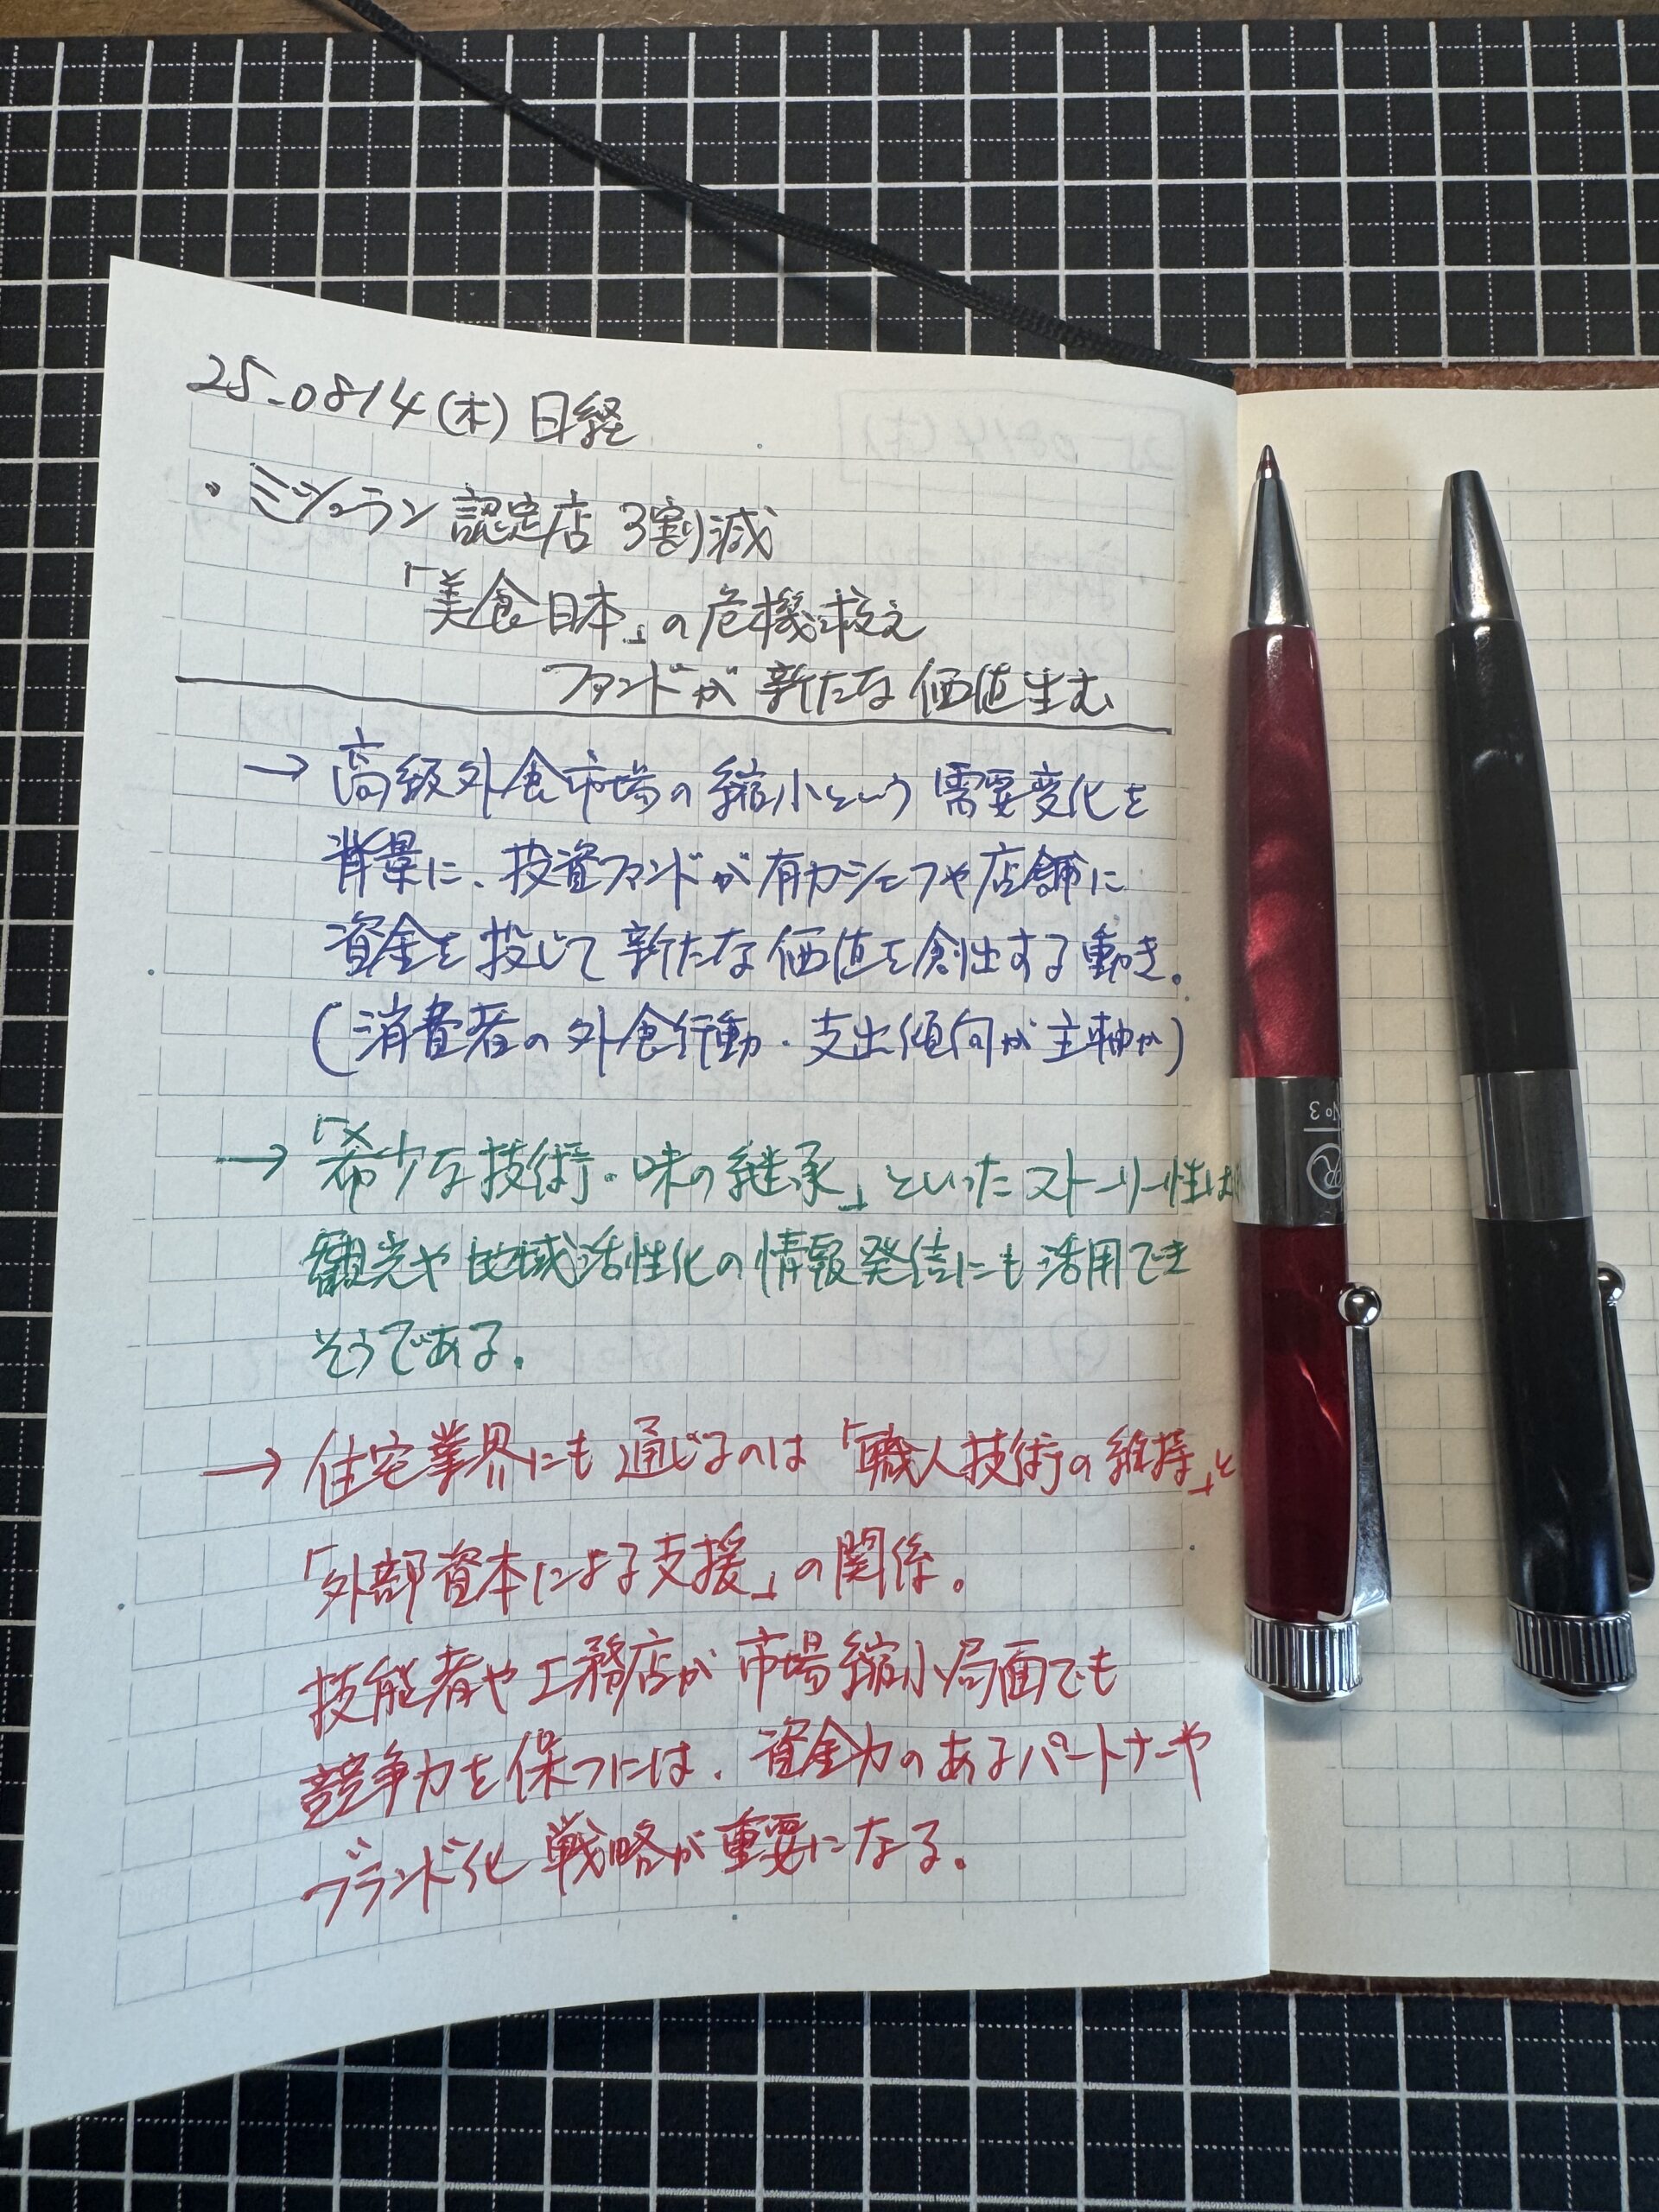 25.0814(木)日経
・ミシュラン認定店 3割減
「美食日本」の危機救え
ファンドが新たな価値生む
→高級外食市場の縮小という需要変化を
背景に、投資ファンドが有力シェフや店舗に
資金を投じて新たな価値を創出する動き。
(消費者の外食行動・支出傾向が主軸か)
→「希少な技術・味の継承」といったストーリー性は
観光や地域活性化の情報発信にも活用でき
そうである。
→住宅業界にも通じるのは「職人技術の維持」と
「外部資本による支援」の関係。
技能者や工務店が市場縮小局面でも
競争力を保つには、資金力のあるパートナーや
ブランド化戦略が重要になる。
R No3